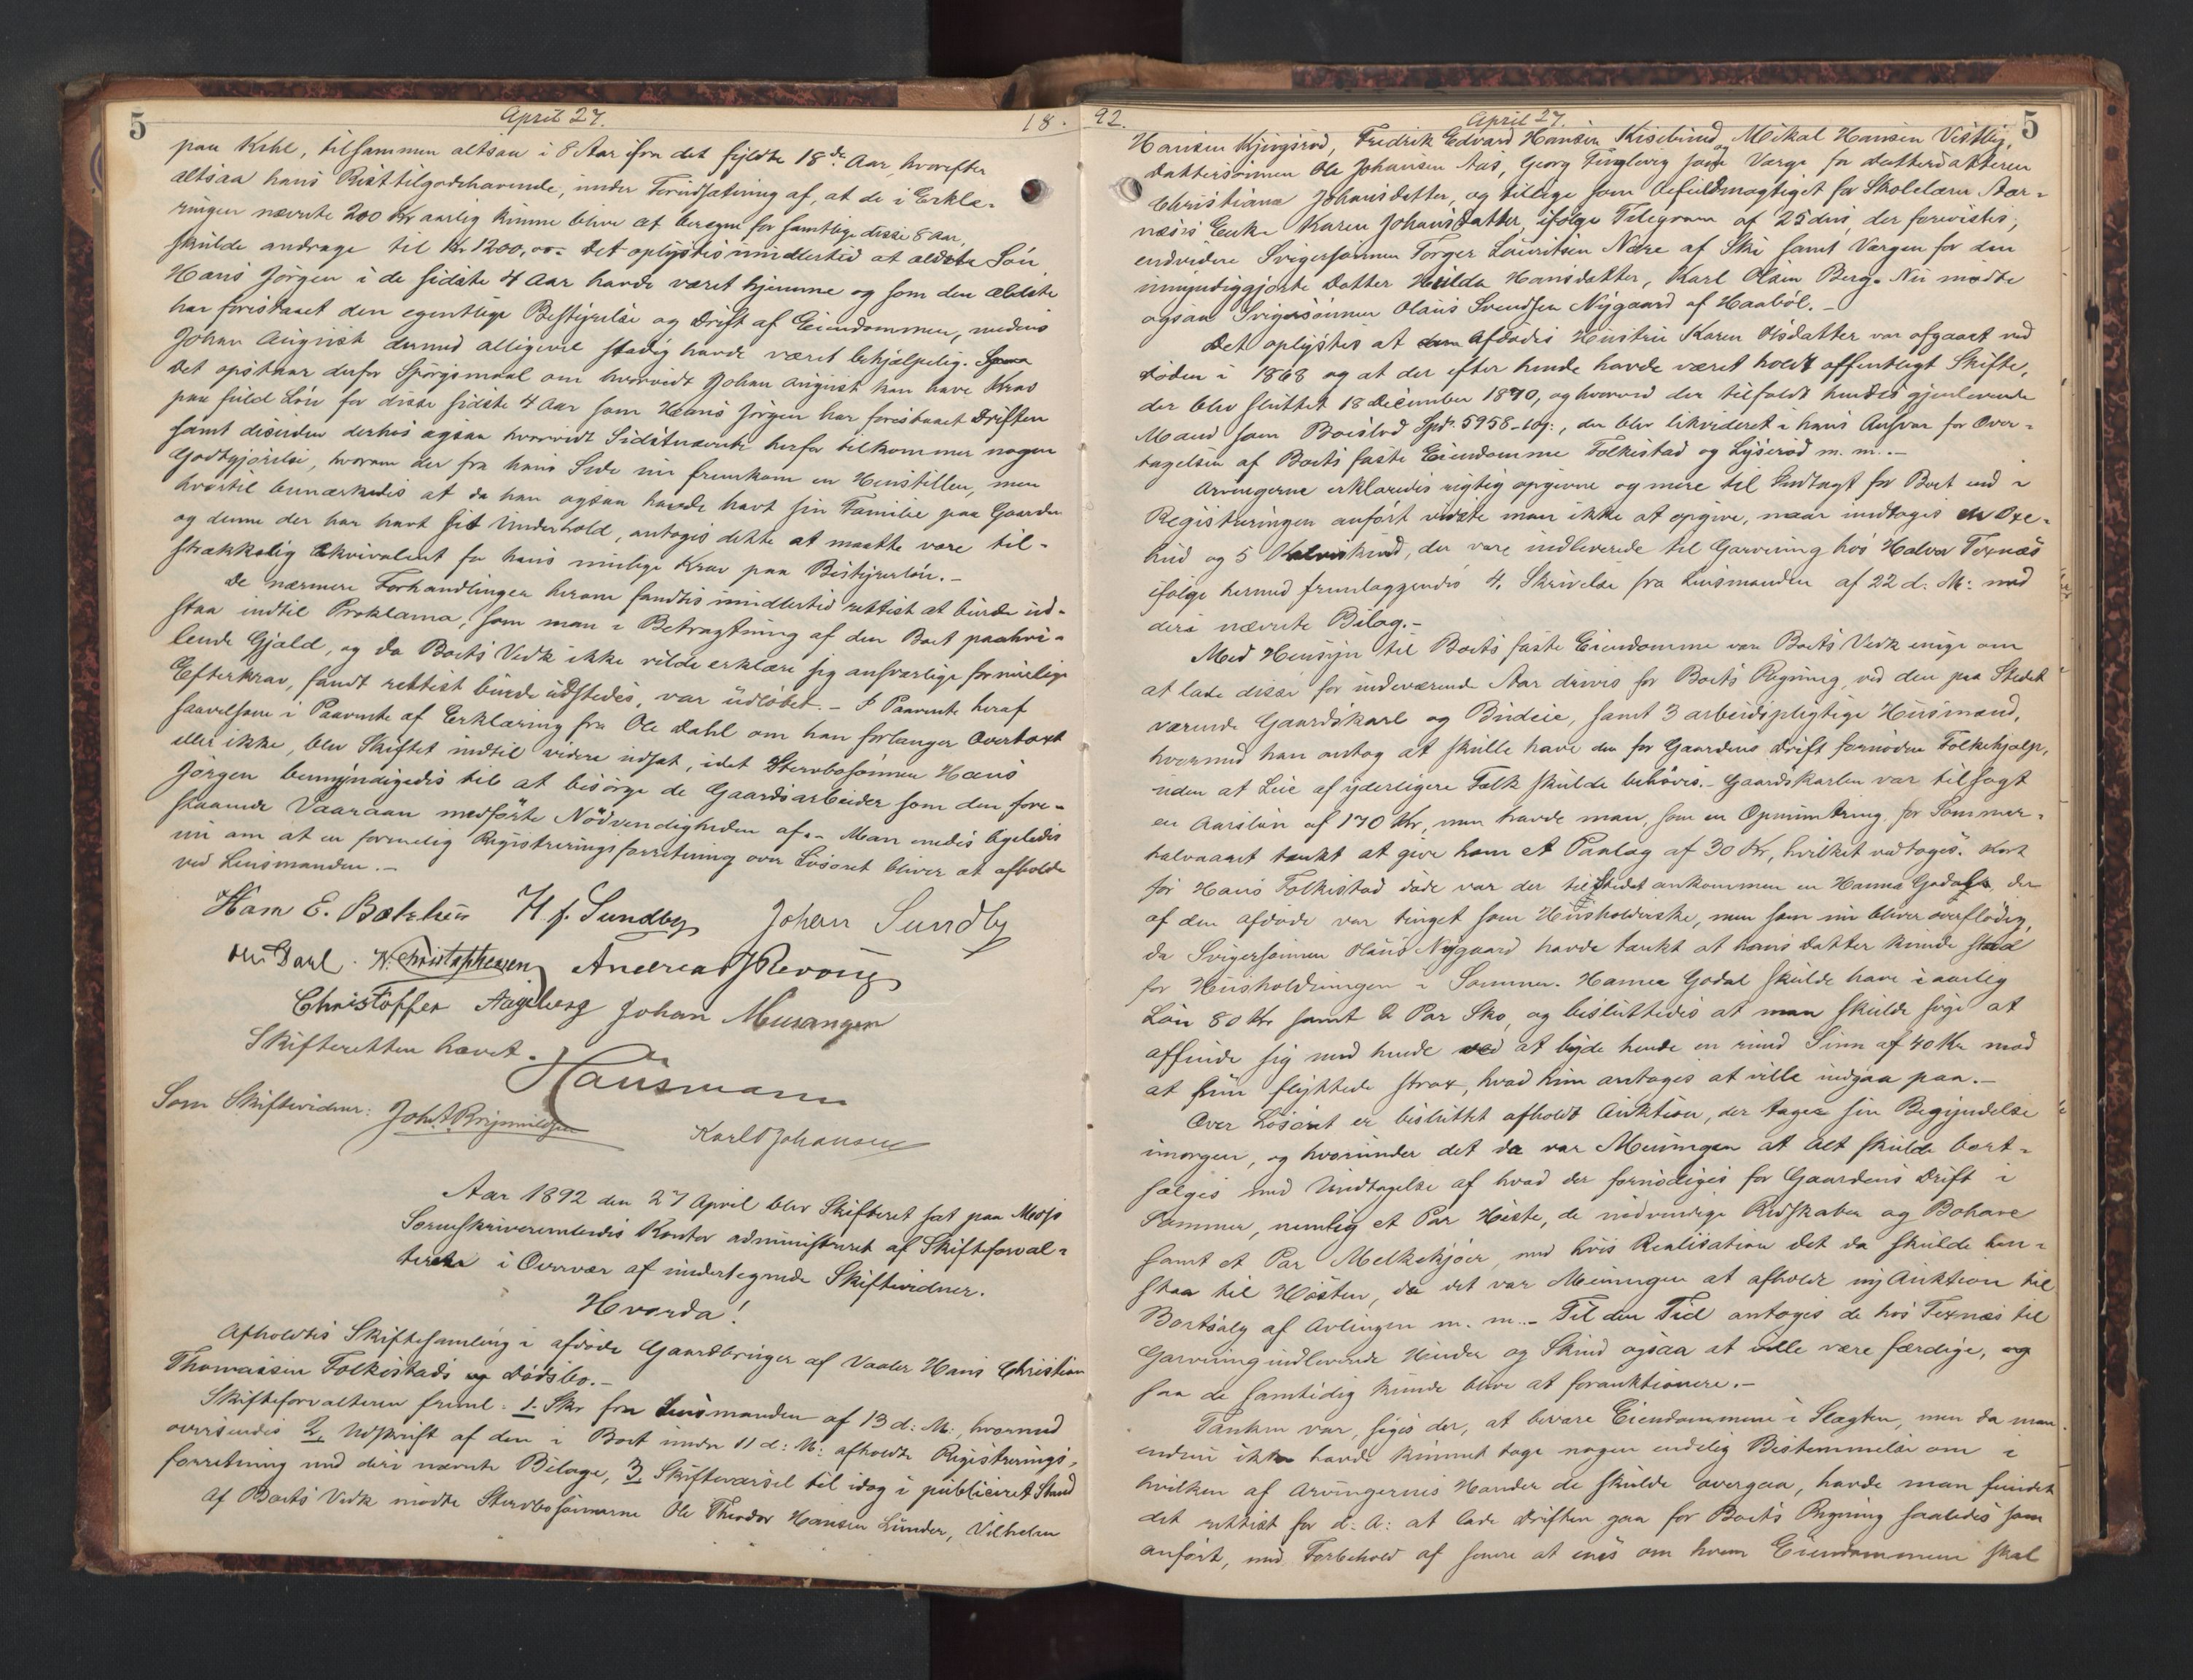 5
April 27.
18.
paa Kehl, tilsammen altsaa i 8 Aar ifra det fyldte 18de Aar, hvorefter
altsaa hans Resttilgodehavende, under Forudsætning af, at de i Erklæ-
ringen nævnte 200 Kr aarlig kunne blive at beregne for samtlige disse 8 Aar,
skulde andrage til Kr 1200,00. Det oplystes imidlertid at ældste Søn
Hans Jörgen i de sidste 4 Aar havde været hjemme og som den ældste
har forestaaet den egentlige Bestyrelse og Drift af Eiendommen, medens
Johan August dermed alligevel stadig havde været behjælpelig.
Det opstaar derfor Spörgsmaal om hvorvidt Johan August kan have Krav
paa fuld Lön for disse sidste 4 Aar som Hans Jörgen har forestaaet Driften
samt desuden derhos ogsaa hvorvidt Sidstnævnte herfor tilkommer nogen
Godtgjörelse, hvorom der fra hans Side nu fremkom en Henstillen, men
hvortil bemærkedes at da han ogsaa havde havt sin Familie paa Gaarden
og denne der har havt sit Underhold, antoges dette at maatte være til-
strækkelig Ækvivalent for hans mulige Krav paa Bestyrerlön.-
De nærmere Forhandlinger herom fandtes imidlertid rettest at burde ud-
staa indtil Proklama, som man i Betragtning af den Boet paahvi-
lende Gjæld, og da Boets Vedk ikke vilde erklære sig ansvarlige for mulige
Efterkrav, fandt rettest burde udstedes, var udlöbet. - I Paavente heraf
saavelsom i Paavente af Erklæring fra Ole Dahl om han forlanger Overtaxt
eller ikke, blev Skiftet indtil videre udsat, idet Stervbosönnen Hans
Jörgen bemyndigedes til at besörge de Gaardsarbeider som den fore-
staaende Vaaraan medförte Nödvendigheden af.- Man enedes ligeledes
nu om at en formelig Registreringsforretning over Lösöret bliver at afholde
ved Lensmanden.-
H. J. Sundby Johan Sundby
Ole Dahl. N. Christophersen Andreas
Christoffer Johan
Skifteretten hævet.
Hausmann
Som Skiftevidner:
Karl Johansen
Aar 1892 den 27 April blev Skifteret sat paa Moss
Sorenskriverembedes Kontor administreret af Skifteforval-
teren i Overvær af undertegnede Skiftevidner.
Hvorda!
Afholdtes Skiftesamling i afdöde Gaardbruger af Vaaler Hans Christian
Thomassen Folkestads Dödsbo.-
Skifteforvalteren freml. 1. Skr fra Lensmanden af 13 d: M:, hvormed
oversendes 2, Udskrift af den i Boet under 11 d: M: afholdte Registrerings-
forretning med deri nævnte Bilage, 3 Skiftevarsel til idag i publiceret Stand
Af Boets Vedk mödte Stervbosönnerne Ole Theodor Hansen Lunder, Vilhelm
92.
April 27.
5
Hansen Kjingsröd, Fredrik Edvard Hansen og Mikal Hansen Vestby,
Dattersönnen Ole Johansen Aas, Georg som Værge for Datterdatteren
Christiana Johansdatter, og tillige som Befuldmægtiget for Skolelærer Aar-
næs's Enke Karen Johansdatter, ifölge Telegram af 25 dns, der forevistes,
endvidere Svigersönnen Torger Lauritsen Nære af Ski samt Værgen for den
umyndiggjorte Datter Hulda Hansdatter, Karl Olsen Berg. Nu mødte
ogsaa Svigersönnen Olaus Svendsen Nygaard af Haaböl.-
Det oplystes at Afdödes Hustru Karen Olsdatter var afgaaet ved
Döden i 1868 og at der efter hende havde været holdt offentligt Skifte,
der blev sluttet 18 December 1870, og hvorved der tilfaldt hendes gjenlevende
Mand som Boeslod Spd. 5958 - , der blev likvideret i hans Ansvar for Over-
tagelsen af Boets faste Eiendomme Folkestad og Lyseröd m. m.-
Arvingerne erklæredes rigtig opgivne og mere til Indtægt for Boet end i
Registreringen anfört vidste man ikke at opgive, naar undtages en Oxe-
hud og 5 Kalveskind, der vare indleverede til Garvering hos Halvor Texnæs
ifölge hermed fremlæggendes 4. Skrivelse fra Lensmanden af 22 d. M: med
deri nævnte Bilag.-
Med Hensyn til Boets faste Eiendomme vare Boets Vedk enige om
at lade disse for indeværende Aar drives for Boets Regning, ved den paa Stedet
værende Gaardskarl og Budeie, samt 3 arbeidspligtige Husmænd,
hvormed han antog at skulle have den for Gaardens Drift fornødne Folkehjælp,
uden at Leie af yderligere Folk skulde behöves.- Gaardskarlen var tilsagt
en Aarslön af 170 Kr, men havde man, som en Opmuntring for Sommer-
halvaaret tænkt at give ham et Paalæg af 30 Kr, hvilket vedtoges. Kort
før Hans Folkestad døde var der til Stedet ankommen en Hanna Godal, der
af den afdöde var tinget som Husholderske, men som nu bliver overflödig,
da Svigersönnen Olaus Nygaard havde tænkt at hans Datter kunde staa
for Husholdningen i Sommer. Hanna Godal skulde have i aarlig
Lön 80 Kr samt 2 Par Sko, og besluttedes at man skulde söge at
affinde sig med hende ved at byde hende en rund Sum af 40 Kr mod
at hun flyttede strax, hvad hun antoges at ville indgaa paa.-
Over Lösöret er besluttet afholdt Auktion, der tager sin Begyndelse
imorgen, og hvorunder det da var Meningen at Alt skulde bort-
sælges med Undtagelse af hvad der fornödiges for Gaardens Drift i
Sommer, nemlig et Par Heste, de nödvendige Redskaber og Bohave
samt et Par Melkekjöer, med hvis Realisation det da skulde hen-
staa til Hösten, da det var Meningen at afholde ny Auktion til
Bortsalg af Avlingen m. m.- Til den Tid antoges de hos Texnæs til
Garvering indleverede Huder og Skind ogsaa at ville være færdige, og
saa de samtidig kunde blive at forauktionere.-
Tanken var, siges der, at bevare Eiendommene i Slægten, men da man
endnu ikke havde kunnet tage nogen endelig Bestemmelse om i
hvilken af Arvingernes Hænder de skulde overgaa, havde man fundet
det rettest for d: A: at lade Driften gaa for Boets Regning saaledes som
anført, med Forbehold af senere at enes om hvem Eiendommene skal